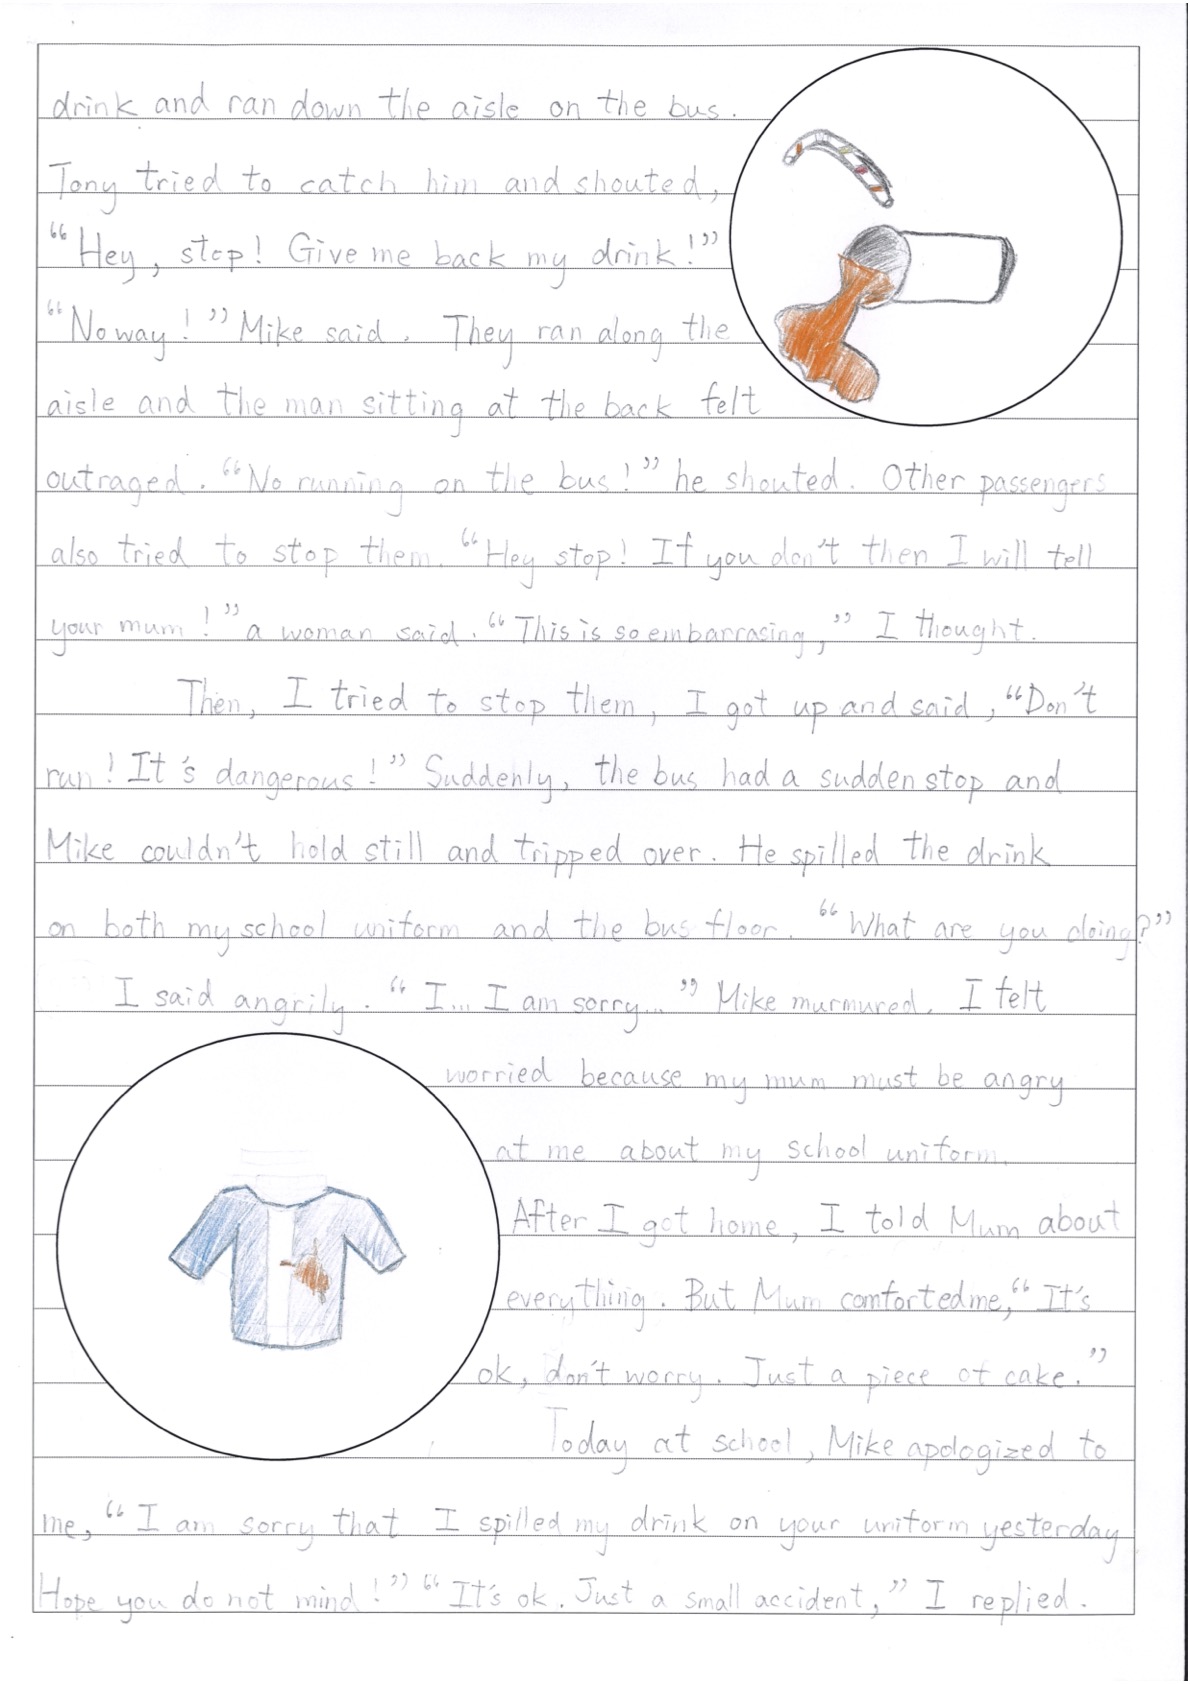 drink and ran down the aisle on the bus.
Tony tried to catch him and shouted,
“Hey, stop! Give me back my drink!”
“No way!” Mike said. They ran along the
aisle and the man sitting at the back felt
outraged. “No running on the bus!” he shouted. Other passengers
also tried to stop them. “Hey stop! If you don't then I will tell
your mum!” a woman said. “This is so embarrasing,” I thought.
Then, I tried to stop them, I got up and said, “Don't
run! It's dangerous!” Suddenly, the bus had a sudden stop and
Mike couldn't hold still and tripped over. He spilled the drink
on both my school uniform and the bus floor. “What are you doing?”
I said angrily. “I... I am sorry...” Mike murmured. I felt
worried because my mum must be angry
at me about my school uniform.
After I got home, I told Mum about
everything. But Mum comforted me, “It's
ok, don't worry. Just a piece of cake.”
Today at school, Mike apologized to
me, “I am sorry that I spilled my drink on your uniform yesterday
Hope you do not mind!” “It's ok. Just a small accident,” I replied.